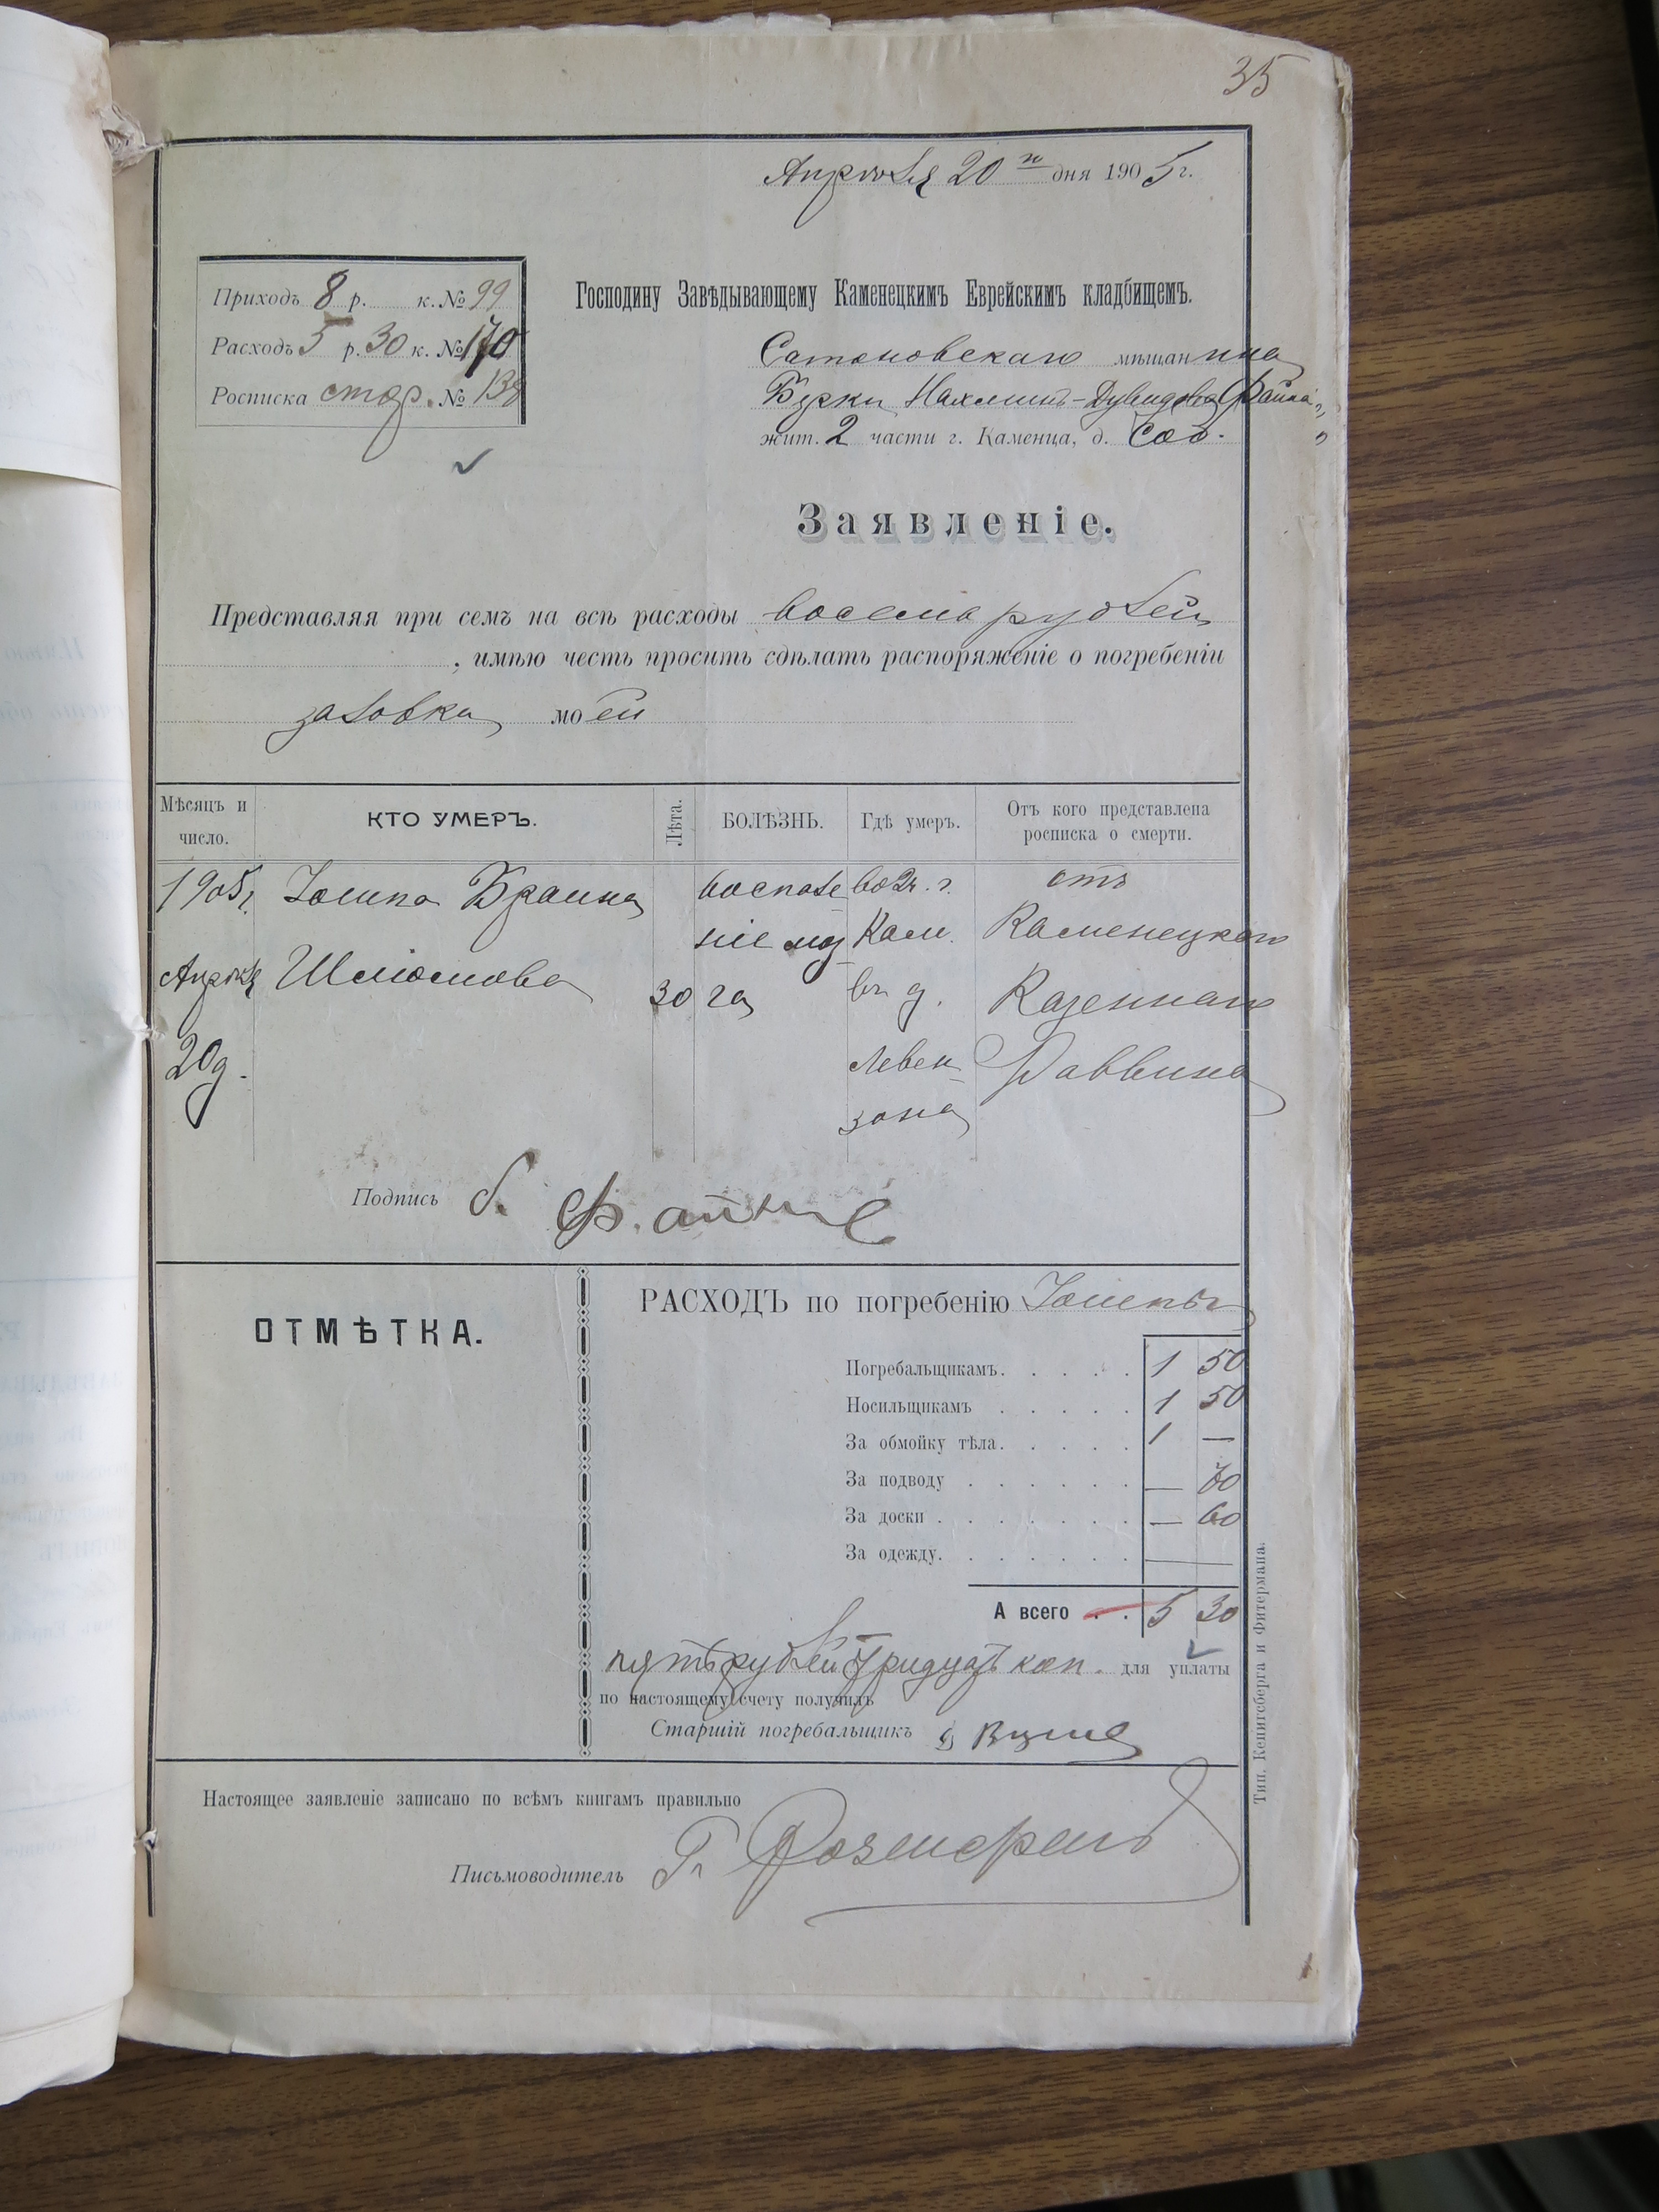 35
Апрѣля 20го дня 1905 г.
Приходъ 8 р. к. № 99
Расходъ 5 р. 30 к. № 170
Росписка стор. № 138
Господину Завѣдывающему Каменецкимъ Еврейскимъ кладбищемъ.
Сатановскаго мѣщанина
Берки Нахминъ-Дувидова Файна
жит. 2 части г. Каменца, д. Соб.
Заявленіе.
Представляя при семъ на всѣ расходы восемь рублей
, имѣю честь просить сдѣлать распоряженіе о погребеніи
золовка моей
Мѣсяцъ и число.
КТО УМЕРЪ.
Лѣта.
БОЛѢЗНЬ.
Гдѣ умеръ.
Отъ кого представлена росписка о смерти.
1905 г. воспале во 2 ч. г. отъ
ніе моз Кам. Каменецкаго
Апрѣля Шліомова 30 га въ д. Казеннаго
20 д. Левен Раввина
зона
Подпись Б. Файн
ОТМѢТКА.
РАСХОДЪ по погребенію
Погребальщикамъ. 1 50
Носильщикамъ 1 50
За обмойку тѣла. 1 —
За подводу — 70
За доски — 60
За одежду. —
А всего 5 30
пять рублей тридцать коп. для уплаты
по настоящему счету получилъ
Старшій погребальщикъ
Настоящее заявленіе записано по всѣмъ книгамъ правильно
Письмоводитель
Тип. Кенигсберга и Фитермана.